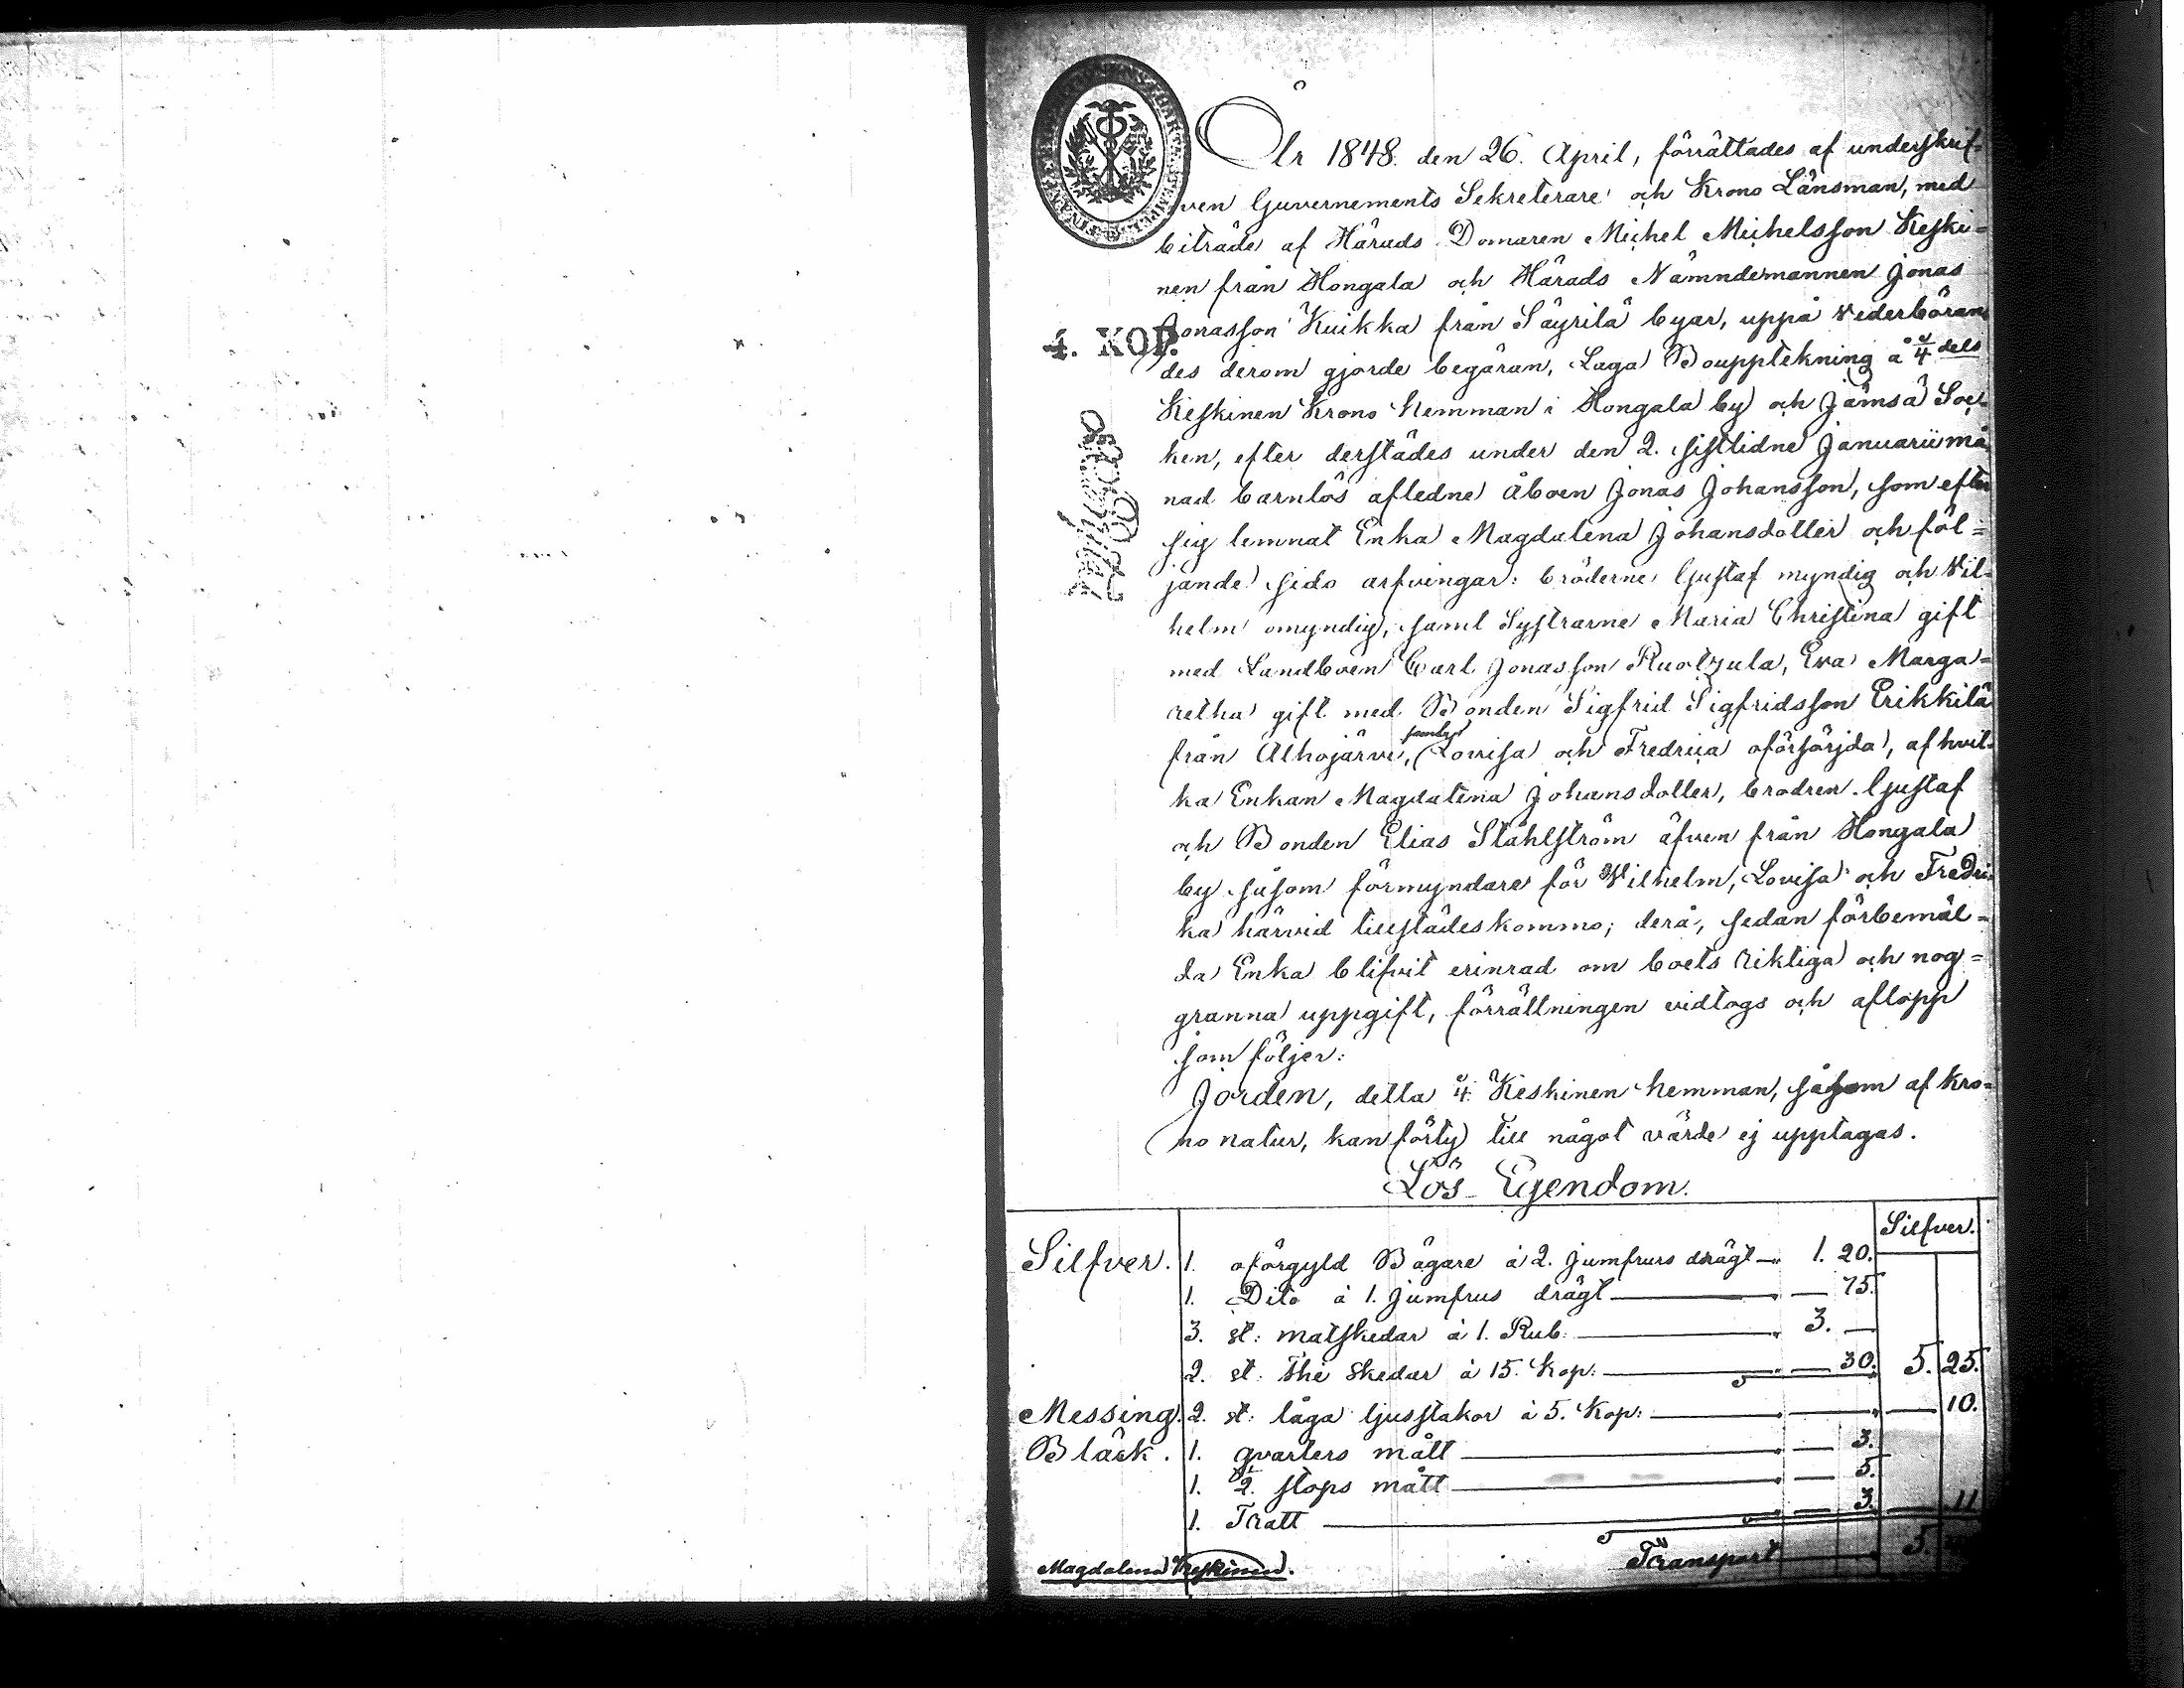 År 1848. den 26. April, förrättades af underskrif=
ven Guvernements Sekreterare och Krono Länsman, med
biträde af Härads Domaren Michel Michelsson Keski=
nen från Hongala och Härads Nämndemannen Jonas
Jonasson Kuikka från Säyrilä byar, uppå vederböran
des derom gjorde begäran, Laga Bouppteckning å 1/4 dels
4. KOP.
Keskinen Krono hemman i Hongala by och Jämsä Soc=
ken, efter derstädes under den 2. sistlidne Januarii må
nad barnlös afledne åboen Jonas Johansson, som efter
sig lemnat Enka Magdalena Johansdotter och föl=
jande sido arfvingar: bröderne Gustaf myndig och Vil=
helm omyndig, samt Systrarne Maria Christina gift
med Landboen Carl Jonasson Ruotzula, Eva Marga=
retha gift med Bonden Sigfrid Sigfridsson Erikkilä
från Alhojärvi, samt Lovisa och Fredrica oförsörjda, af hvil=
ka Enkan Magdalena Johansdotter, brodren Gustaf
och Bonden Elias Ståhlström äfven från Hongala
by såsom förmyndare för Wilhelm, Lovisa och Fredri=
ka härvid tillstädeskommo; derå, sedan förbemäl=
da Enka blifvit erinrad om boets riktiga och nog=
granna uppgift, förrättningen vidtogs och aflopp
som följer:
Jorden, detta 1/4 Keskinen hemman, såsom af Kro=
no natur, kan förty till något värde ej upptagas.
Lös Egendom.
Silfver.
Silfver. 1. oförgyld Bägare à 2. jumfrurs drägt 1. 20.
1. Dito à 1. jumfrus drägt — 75.
3. st: matskedar à 1. Rub: 3. —
2. st: Thé skedar à 15. Kop: — 30. 5. 25.
Messing. 2. st: låga ljusstakor à 5. Kop: — 10.
Bläck. 1. qvarters mått — 3.
1. 1/2. stops mått — 5.
1. Tratt — 3. — 11
Transport 5.
Magdalena Keskinen.